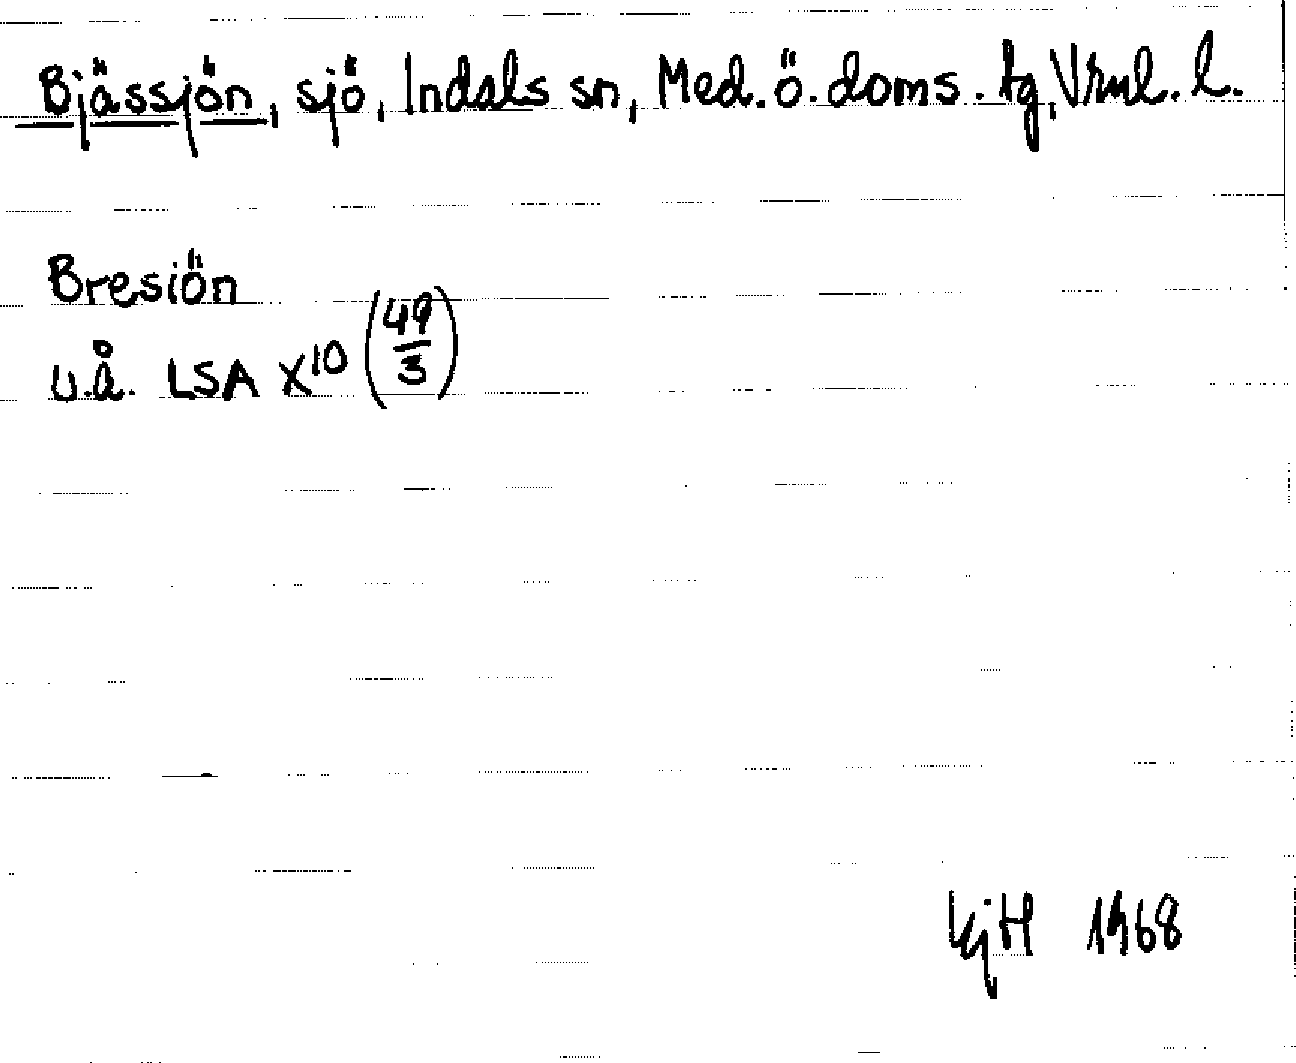 Bjässjön, sjö, Indals sn, Med. ö. doms. tg, Vrnl. l.
Bresiön
u.å. LSA X¹⁰ (49/3)
KjH 1968